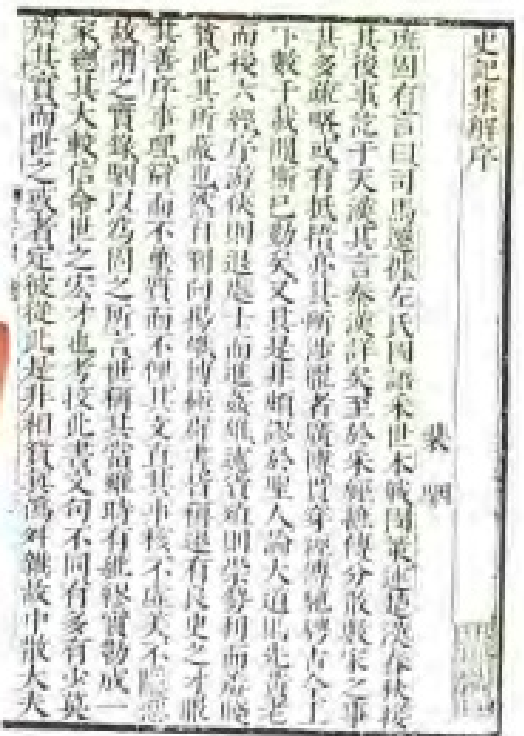 史記集解序
裴駰
班固有言曰司馬遷據左氏國語采世本戰國策述楚漢春秋接
其後事訖于天漢其言秦漢詳矣至於采經摭傳分散數家之事
甚多疏略或有抵捂亦其所涉獵者廣博貫穿經傳馳騁古今上
下數千載間斯已勤矣又其是非頗謬於聖人論大道則先黃老
而後六經序游俠則退處士而進姦雄述貨殖則崇勢利而羞賤
貧此其所蔽也然自劉向揚雄博極羣書皆稱遷有良史之才服
其善序事理辯而不華質而不俚其文直其事核不虛美不隱惡
故謂之實錄駰以為固之所言世稱其當雖時有紕繆實勒成一
家總其大較信命世之宏才也考挍此書文句不同有多有少莫
辯其實而世之惑者定彼從此是非相貿真偽舛雜故中散大夫